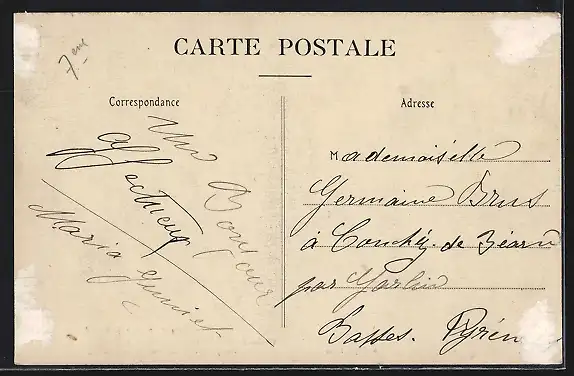 7eme
CARTE POSTALE
Correspondance
Adresse
Un Bonjour
affectueux
Maria
Mademoiselle
Germaine Brus
à Conchéz. de Béarn
par Garlin
Basses. Pyrén